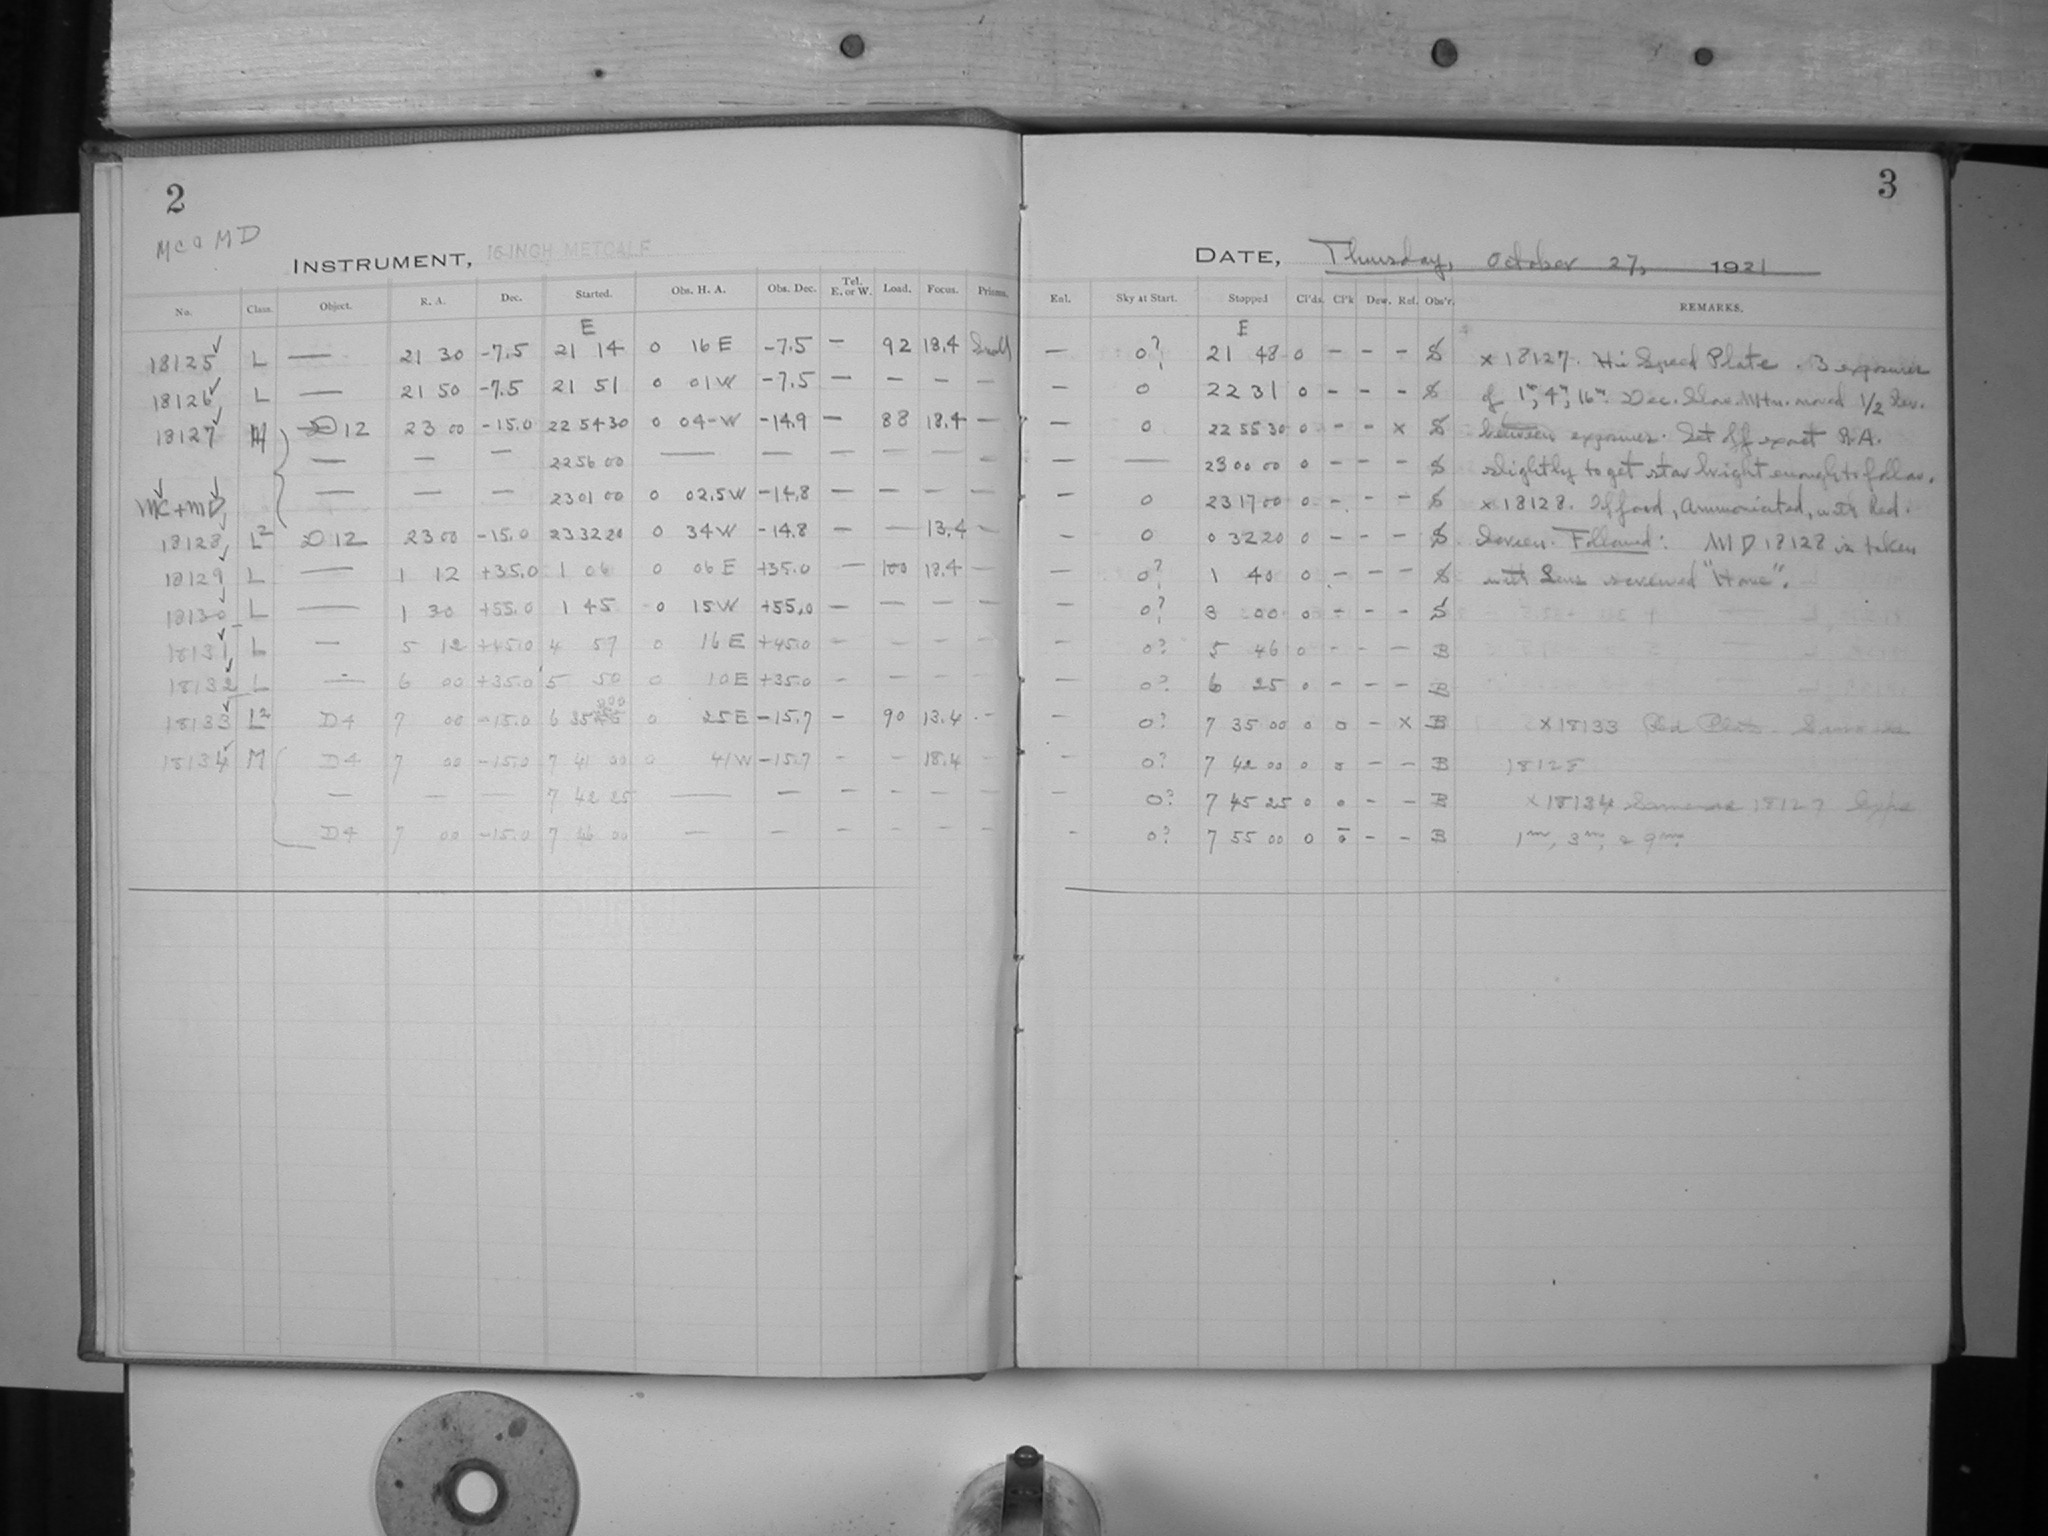 2
MC a MD
INSTRUMENT, 16-INCH METCALF
No. Class. Object. R. A. Dec. Started. Obs. H. A. Obs. Dec. Tel. E. or W. Load. Focus. Prisms.
E
18125 L — 21 30 -7.5 21 14 0 16 E -7.5 — 92 13.4 Small
18126 L — 21 50 -7.5 21 51 0 01 W -7.5 — — — —
18127 M D 12 23 00 -15.0 22 54 30 0 04 W -14.9 — 88 13.4 —
— — — 22 56 00 — — — — — —
MC + MD — — — 23 01 00 0 02.5 W -14.8 — — — —
18128 L2 D 12 23 00 -15.0 23 32 20 0 34 W -14.8 — — 13.4 —
18129 L — 1 12 +35.0 1 06 0 06 E +35.0 — 100 13.4 —
18130 L — 1 30 +55.0 1 45 0 15 W +55.0 — — — —
18131 L — 5 12 +45.0 4 57 0 16 E +45.0 — — — —
18132 L — 6 00 +35.0 5 50 0 10 E +35.0 — — — —
18133 L2 D4 7 00 -15.0 6 35 0 25 E -15.7 — 90 13.4 —
18134 M D4 7 00 -15.0 7 41 00 0 41 W -15.7 — — 13.4 —
— — — 7 42 25 — — — — — —
D4 7 00 -15.0 7 46 00 — — — — — —
3
DATE, Thursday, October 27, 1921
Enl. Sky at Start. Stopped Cl'ds. Cl'k Dew. Ref. Obs'r. REMARKS.
E
— 0? 21 48 0 — — — S x 18127. Hi Speed Plate. 3 exposures
— 0 22 31 0 — — — S of 1m, 4m, 16m. Dec. Slow Mtn. moved 1/2 Rev.
— 0 22 55 30 0 — — x S between exposures. Set off exact R.A.
— — 23 00 00 0 — — — S slightly to get star bright enough to follow.
— 0 23 17 00 0 — — — S x 18128. Ilford, Ammoniated, with Red
— 0 0 32 20 0 — — — S Screen. Followed: MD 18128 is taken
— 0? 1 40 0 — — — S with Lens screwed "Home".
— 0? 3 00 0 — — — S
— 0? 5 46 0 — — — B
— 0? 6 25 0 — — — B
— 0? 7 35 00 0 0 — x B x 18133 Red Plate. Same as
— 0? 7 42 00 0 0 — — B 18128
— 0? 7 45 25 0 0 — — B x 18134 Same as 18127 Exps
— 0? 7 55 00 0 0 — — B 1m, 3m, & 9m.